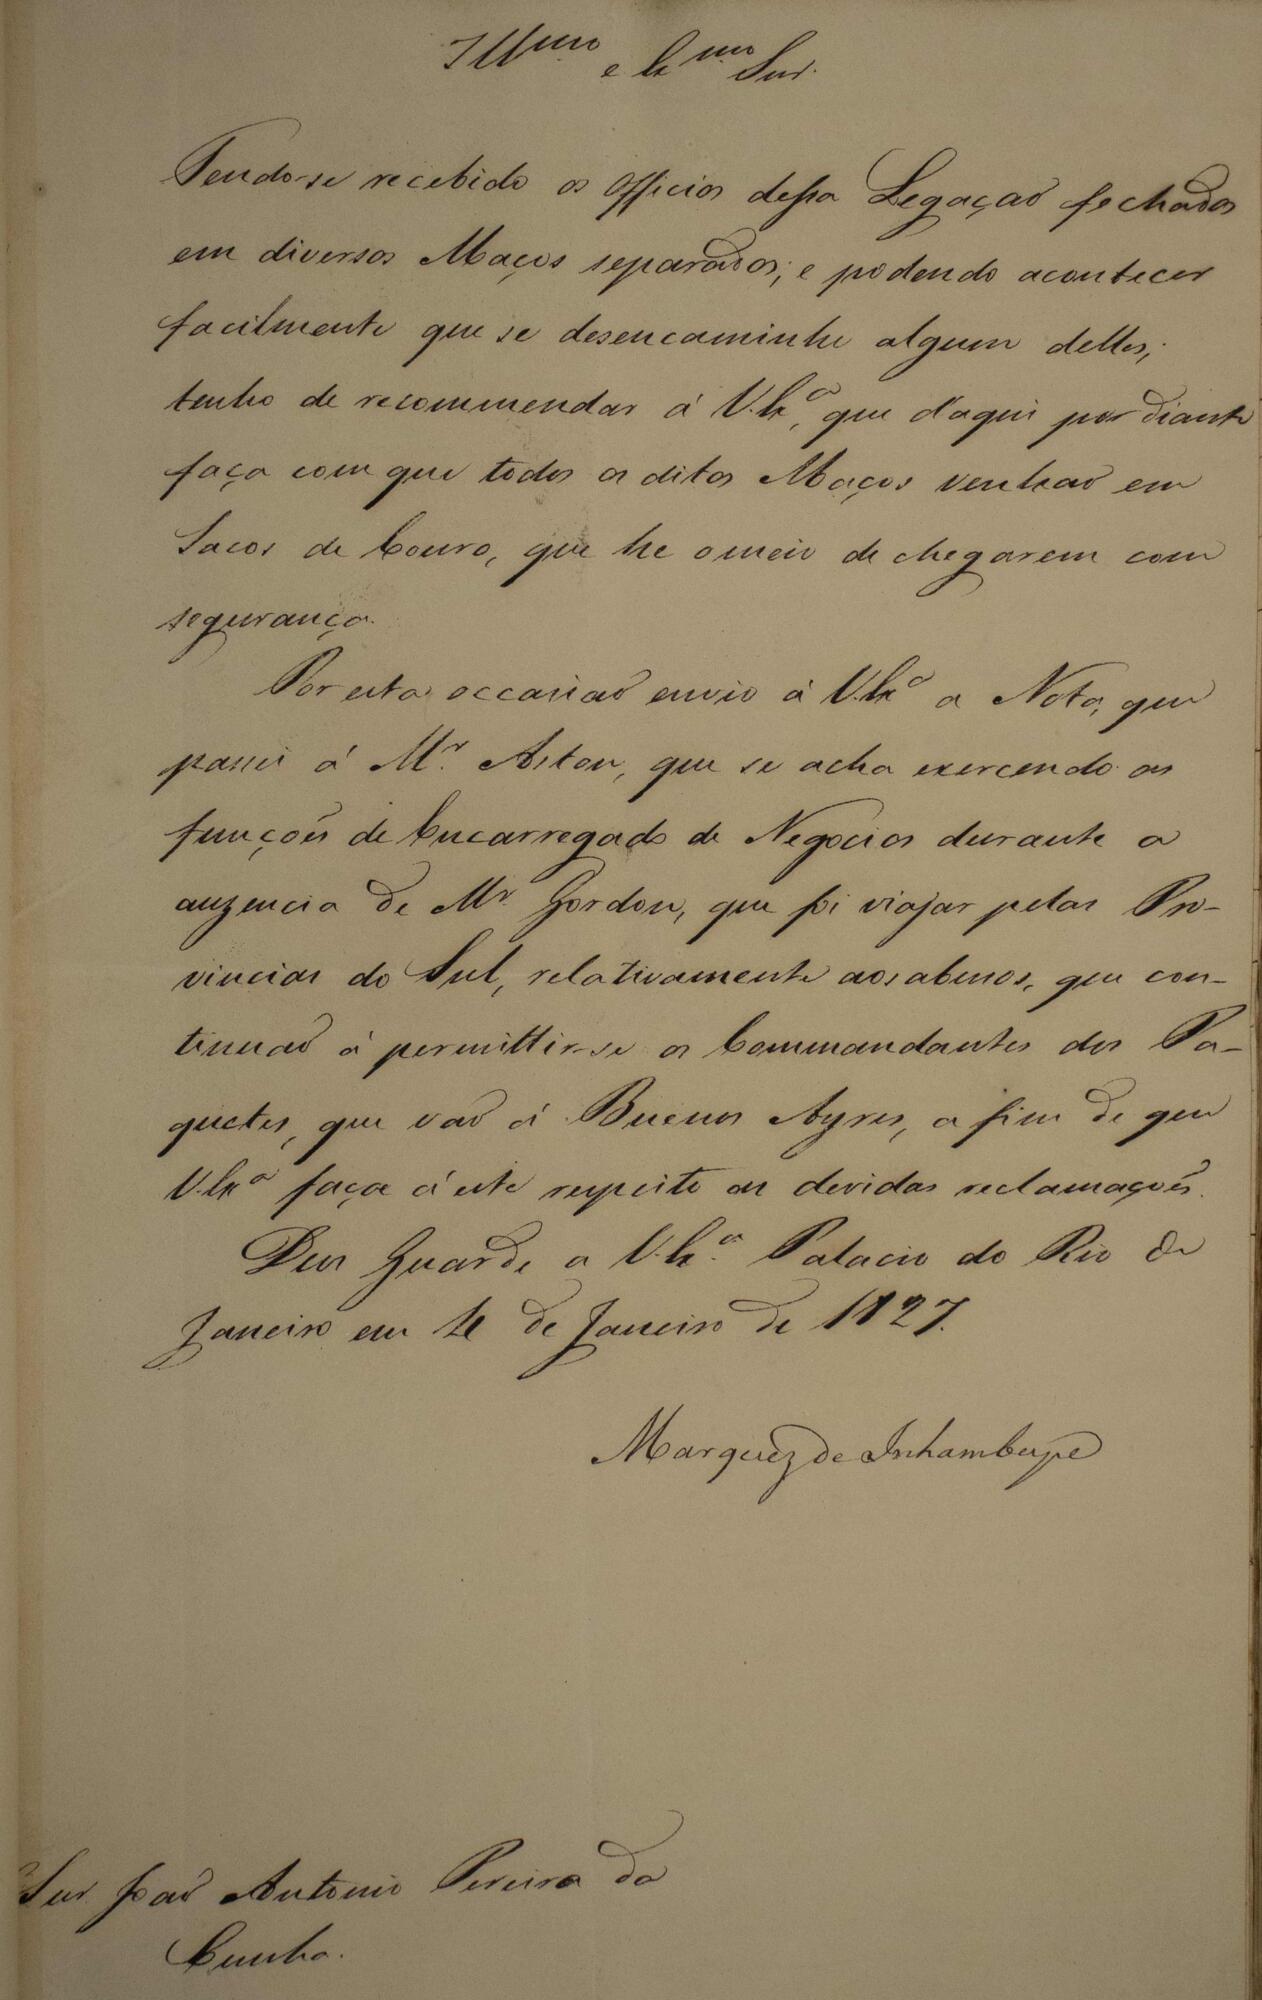 Ill.mo e Ex.mo Snr.
Tendo-se recebido os Officios dessa Legação fechados
em diversos Maços separados; e podendo acontecer
facilmente que se desencaminhe algum delles;
tenho de recommendar á V. Ex.a, que d'aqui por diante
faça com que todos os ditos Maços venhão em
Sacos de Couro, que he o meio de chegarem com
segurança.
Por esta occasião envio á V. Ex.a a Nota, que
passei á M.r Aston, que se acha exercendo as
funções de Encarregado de Negocios durante a
auzencia de M.r Gordon, que foi viajar pelas Pro-
vincias do Sul, relativamente aos abusos, que con-
tinuão á permittir-se os Commandantes dos Pa-
quetes, que vão á Buenos Ayres, a fim de que
V. Ex.a faça á este respeito as devidas reclamações.
Deos Guarde a V. Ex.a Palacio do Rio de
Janeiro em de Janeiro de 1827.
Marquez de Inhambupe
Snr. João Antonio Pereira da
Cunha.